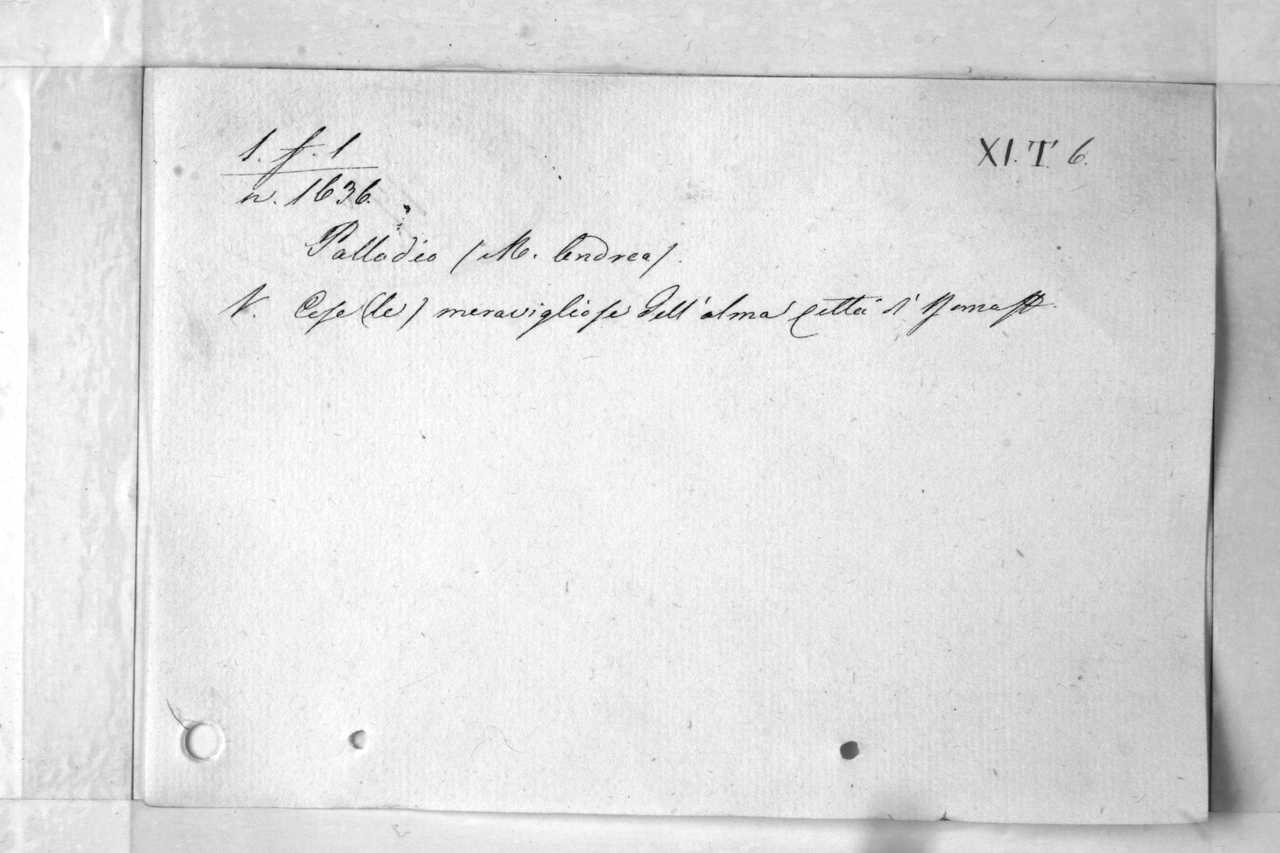 1. f. 1
XI. T. 6.
n. 1636.
Palladio (M. Andrea).
V. Cose (le) meravigliose dell'alma Città di Roma